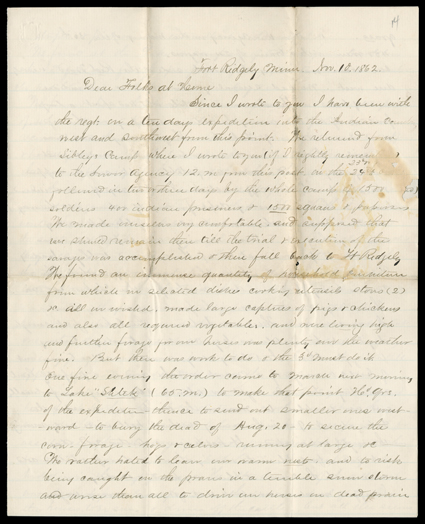 Fort Ridgely Minn. Nov. 10. 1862.
Dear Folks at Home
Since I wrote to you I have been with
the regt. on a ten days expedition into the Indian Co
west and southwest from this point. We returned from
Sibleys Camp where I wrote to you (if I rightly remember)
to the lower Agency 12. m from this post. on the
followed in two or three days by the whole camp
soldiers 400 indian prisoners & 1500 squaws & papooses.
We made ourselves very comfortable. and supposed that
we should remain there till the trial & execution of the
savages was accomplished & then fall back to Ft Ridgely
We found an immense quantity of household furniture
from which we selected dishes cooking utensils stoves (2)
&c all we wished. made large captures of pigs & chickens
and also all required vegetables. and were living high
and further forage for our horses was plenty and the weather
fine. But there was work to do & the 3d must do it
One fine evening the order came to march next morning
to Lake "Shetek" (60. m.) to make that point Hd. Qrs.
of the expedition thence to send out smaller ones west-
ward - to bury the dead of Aug. 20 - to secure the
corn forage hogs & cattle running at large &c
We rather hated to leave our warm nest and to risk
being caught on the prairie in a terrible snow storm
and worse than all to drive our horses on dead prairie